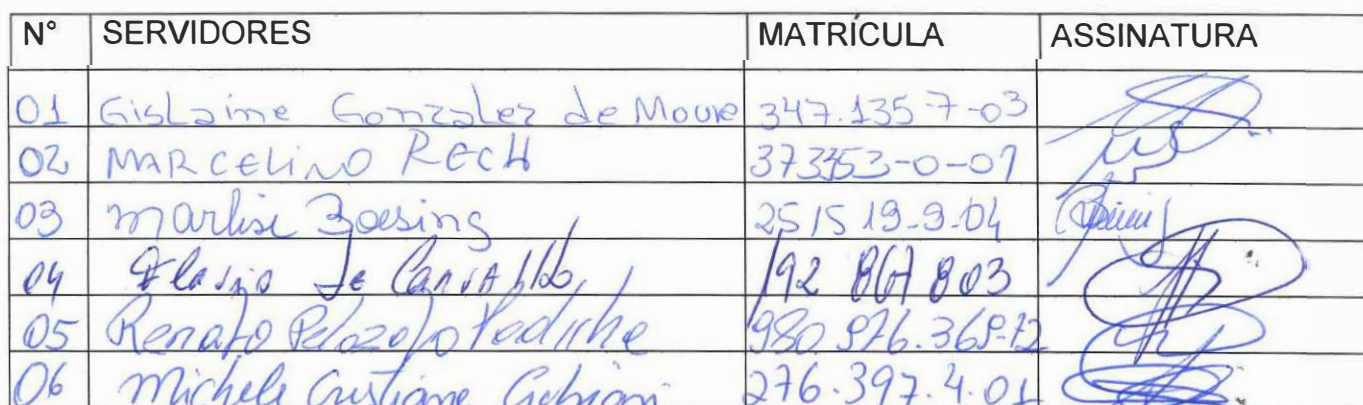 N° SERVIDORES MATRÍCULA ASSINATURA
01 Gislaine Gonzalez de Moure 347.135-7-03
02 MARCELINO RECH 373353-0-01
03 Marlise Boesing 251519-9-04
04 de 192 867 803
05 Renato 980.976.369-72
06 Michele Cristiane 276.397.4.01